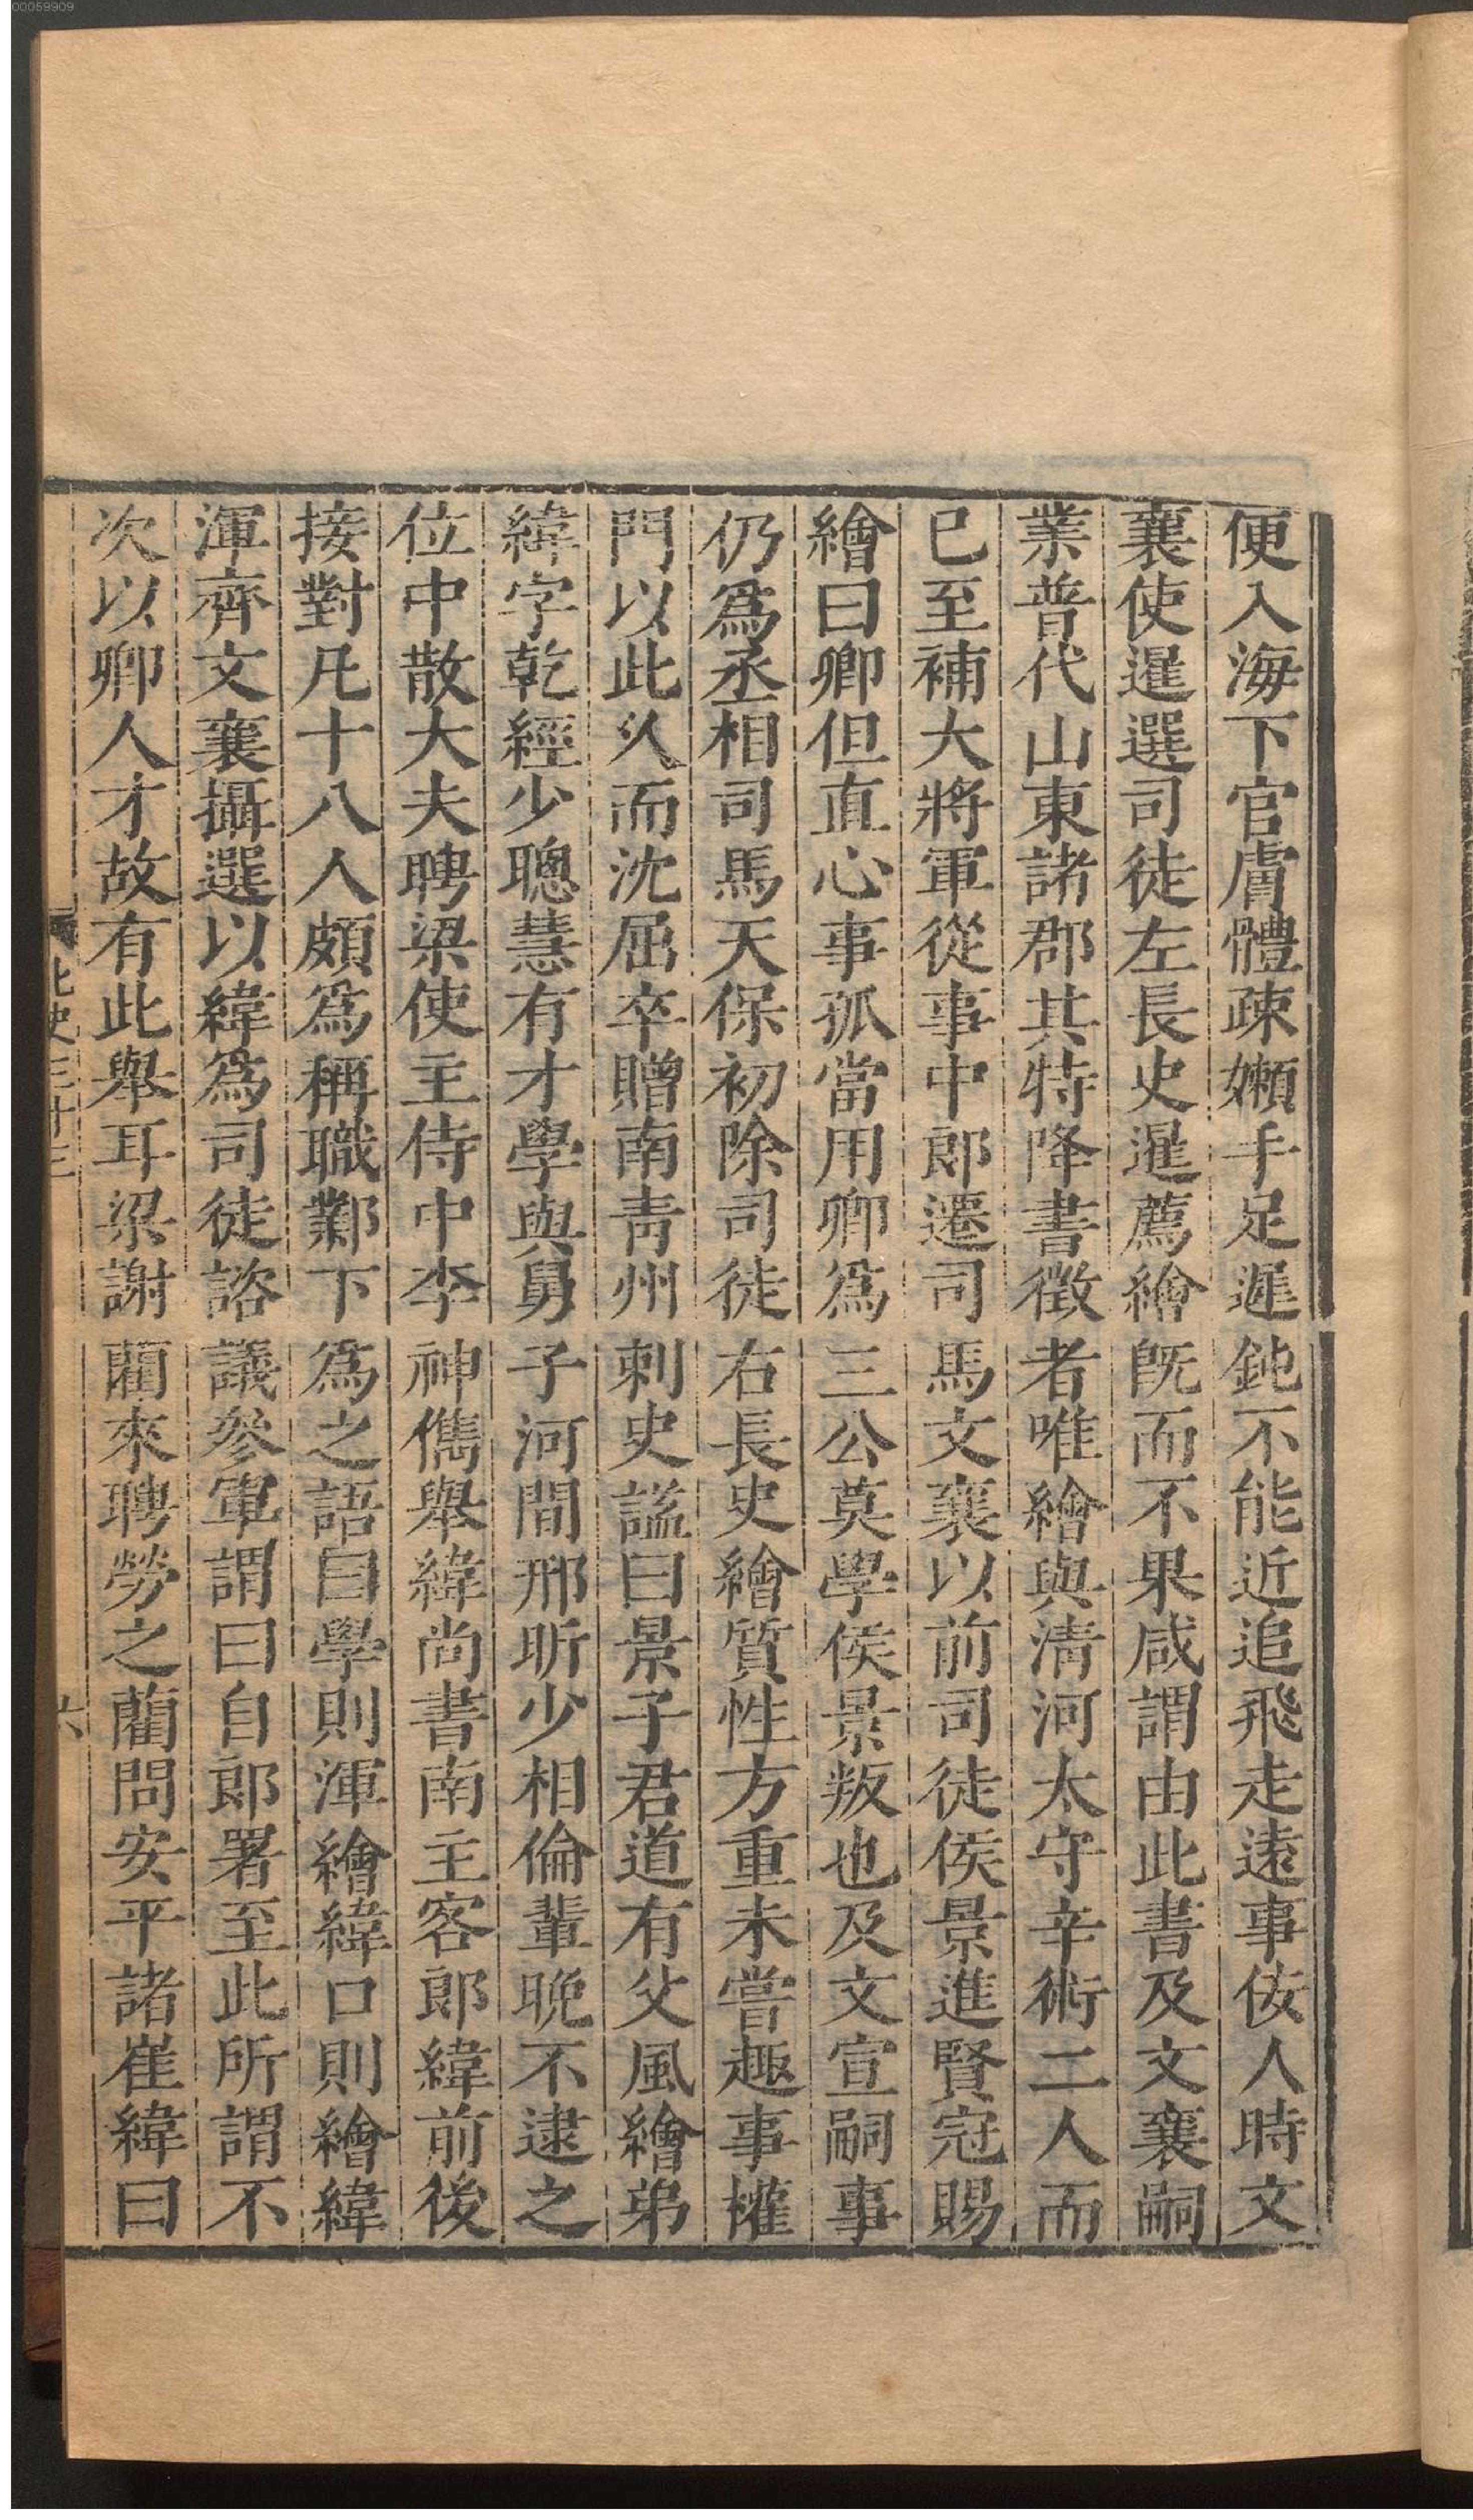 00059909
便入海下官膚體疎嬾手足遲鈍不能近追飛走遠事佞人時文
襄使暹選司徒左長史暹薦繪旣而不果咸謂由此書及文襄嗣
業普代山東諸郡其特降書徵者唯繪與淸河太守辛術二人而
巳至補大將軍從事中郎遷司馬文襄以前司徒侯景進賢冠賜
繪曰卿但直心事孤當用卿爲三公莫學侯景叛也及文宣嗣事
仍爲丞相司馬天保初除司徒右長史繪質性方重未嘗趣事權
門以此久而沈屈卒贈南靑州刺史諡曰景子君道有父風繪弟
緯字乾經少聰慧有才學與舅子河間邢昕少相倫輩晚不逮之
位中散大夫聘梁使主侍中李神儁舉緯尚書南主客郎緯前後
接對凡十八人頗爲稱職鄴下爲之語曰學則渾繪緯口則繪緯
渾齊文襄攝選以緯爲司徒諮議參軍謂曰自郎署至此所謂不
次以卿人才故有此舉耳梁謝藺來聘勞之藺問安平諸崔緯曰
北史三十三
六